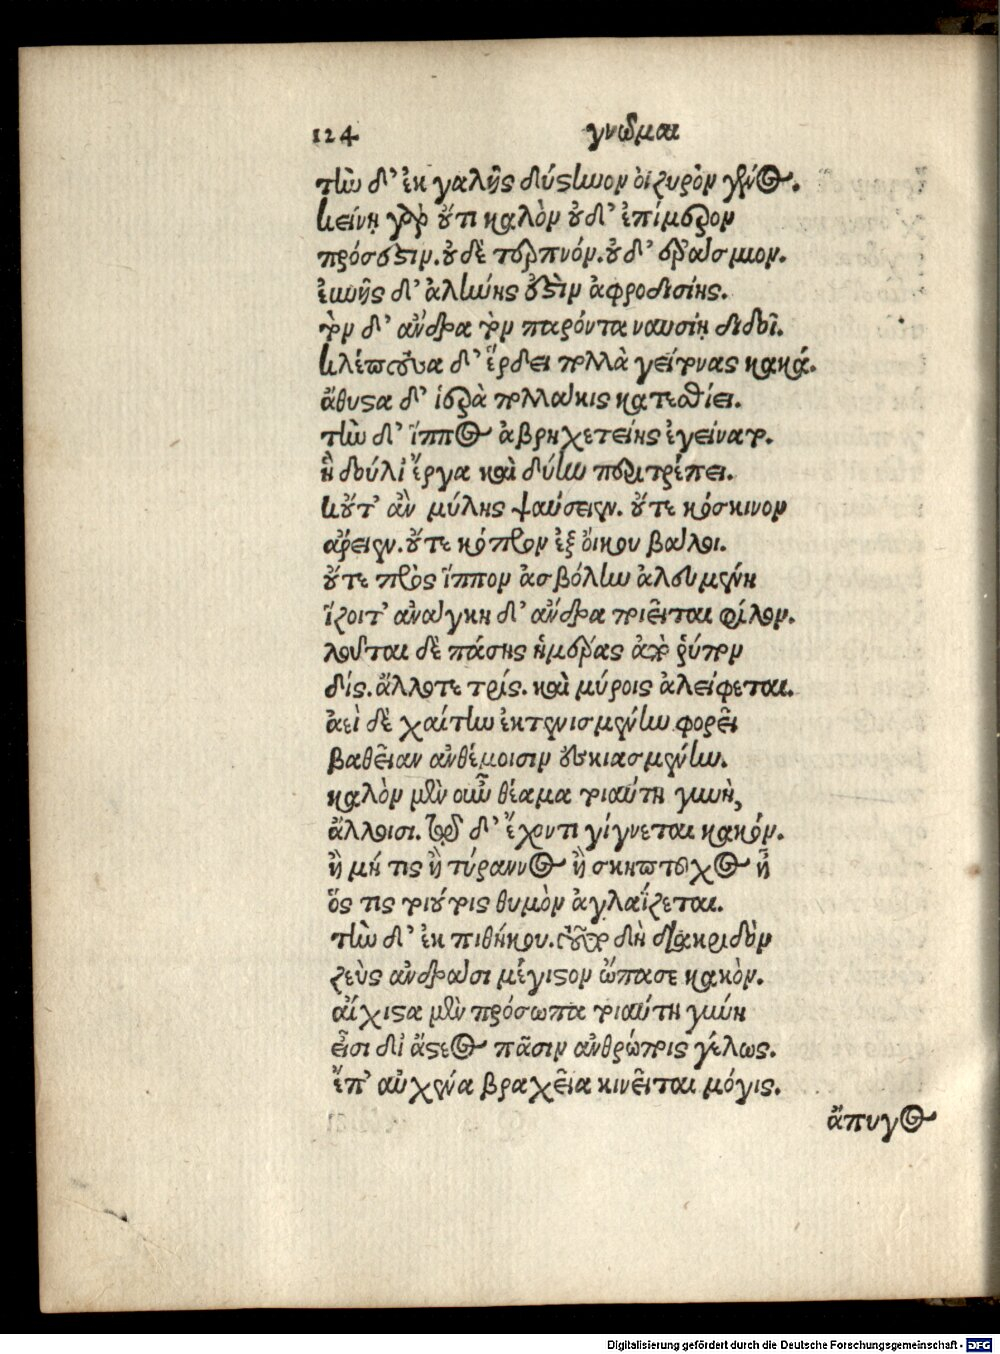 124 γνῶμαι
τὴν δ' ἐκ γαλῆς δύστηνον ὀιζυρὸν γένος.
κείνῃ γὰρ οὔτι καλὸν οὐδ' ἐπίμερον
πρόσεστιν. οὐδὲ τερπνόν. οὐδ' ἐράσμιον.
εὐνῆς δ' ἀληνὴς ἐστὶν ἀφροδισίης.
τὸν δ' ἄνδρα τὸν παρόντα ναυσίῃ διδοῖ.
κλέπτουσα δ' ἕρδει πολλὰ γείτονας κακά.
ἄθυστα δ' ἱερὰ πολλάκις κατεσθίει.
τὴν δ' ἵππος ἁβρὴ χετείης ἐγείνατο.
ἣ δούλι' ἔργα καὶ δύην περιτρέπει.
κοὔτ' ἂν μύλης ψαύσειεν. οὔτε κόσκινον
ἄρειεν. οὔτε κόπρον ἐξ οἴκου βάλοι.
οὔτε πρὸς ἵππον ἀσβόλην ἀλευμένη
ἵζοιτ' ἀνάγκη δ' ἄνδρα ποιεῖται φίλον.
λοῦται δὲ πάσης ἡμέρας ἀπὸ ῥύπον
δίς. ἄλλοτε τρίς. καὶ μύροις ἀλείφεται.
ἀεὶ δὲ χαίτην ἐκτενισμένην φορεῖ
βαθεῖαν ἀνθέμοισιν ἐσκιασμένην.
καλὸν μὲν οὖν θέαμα τοιαύτη γυνὴ,
ἄλλοισι. τῷ δ' ἔχοντι γίγνεται κακόν.
ἢ μή τις ἢ τύραννος ἢ σκηπτοῦχος ᾖ
ὅς τις τοιούτοις θυμὸν ἀγλαΐζεται.
τὴν δ' ἐκ πιθήκου. τοῦτο δὴ διακριδὸν
ζεὺς ἀνδράσι μέγιστον ὤπασε κακὸν.
αἴχιστα μὲν πρόσωπα τοιαύτη γυνή
εἶσι δι' ἄστεος πᾶσιν ἀνθρώποις γέλως.
ἔπ' αὐχένα βραχεῖα κινεῖται μόγις.
ἄπυγος
Digitalisierung gefördert durch die Deutsche Forschungsgemeinschaft - DFG